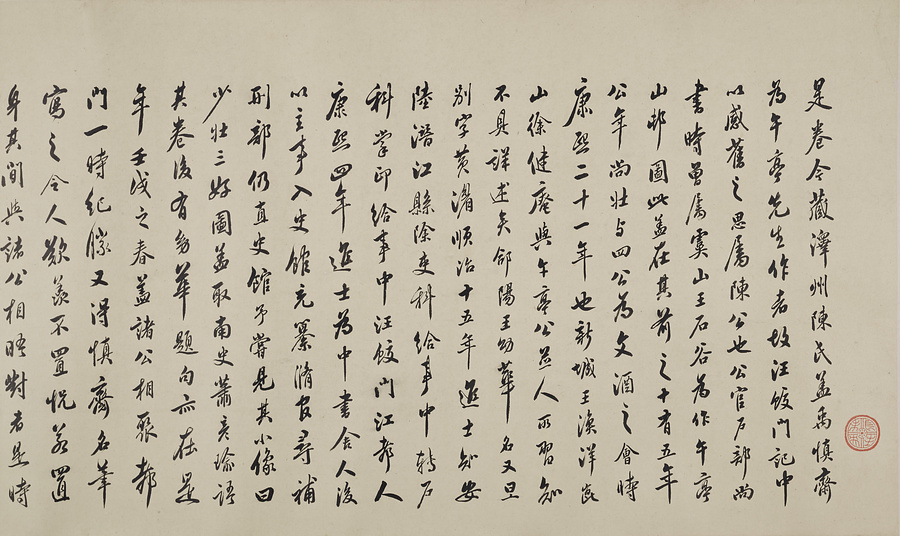 是卷今藏澤州陳氏蓋禹慎齋
為午亭先生作者故汪蛟門記中
以感舊之思屬陳公也公官戶部尚
書時曾屬虞山王石谷為作午亭
山邨圖此蓋在其前之十有五年
公年尚壯与四公為文酒之會時
康熙二十一年也新城王漁洋崑
山徐健庵與午亭公並人所習知
不具詳述矣郃陽王幼華名又旦
別字黃湄順治十五年進士知安
陸潛江縣除吏科給事中轉戶
科掌印給事中汪蛟門江都人
康熙四年進士為中書舍人後
以主事入史館充纂脩官尋補
刑部仍直史館予嘗見其小像曰
少壯三好圖蓋取南史蕭彥瑜語
其卷後有幼華題句亦在是
年壬戌之春蓋諸公相聚都
門一時紀勝又得慎齋名筆
寫之令人歎羨不置怳若置
身其間與諸公相晤對者是時